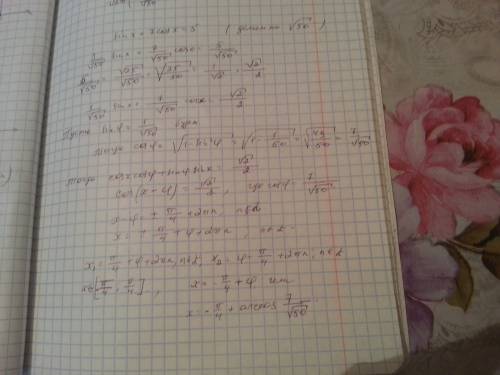 sin x + 7 cos x = 5 ( делим на √50 )
1/√50 sin x + 7/√50 cos x = 5/√50
5/√50 = √25/√50 = √(25/50) = 1/√2 = √2/2
1/√50 sin x + 7/√50 cos x = √2/2
Пусть sin φ = 1/√50
тогда cos φ = √(1 - sin²φ) = √(1 - 1/50) = √(49/50) = 7/√50
тогда cos x cos φ + sin φ sin x = √2/2
cos(x - φ) = √2/2, где cos φ = 7/√50
x - φ = ± π/4 + 2πn, n∈Z
x = ± π/4 + φ + 2πn, n∈Z
x₁ = π/4 + φ + 2πn, n∈Z, x₂ = φ - π/4 + 2πn, n∈Z
x∈[-π/4; π/4], x = -π/4 + φ или
x = -π/4 + arccos 7/√50